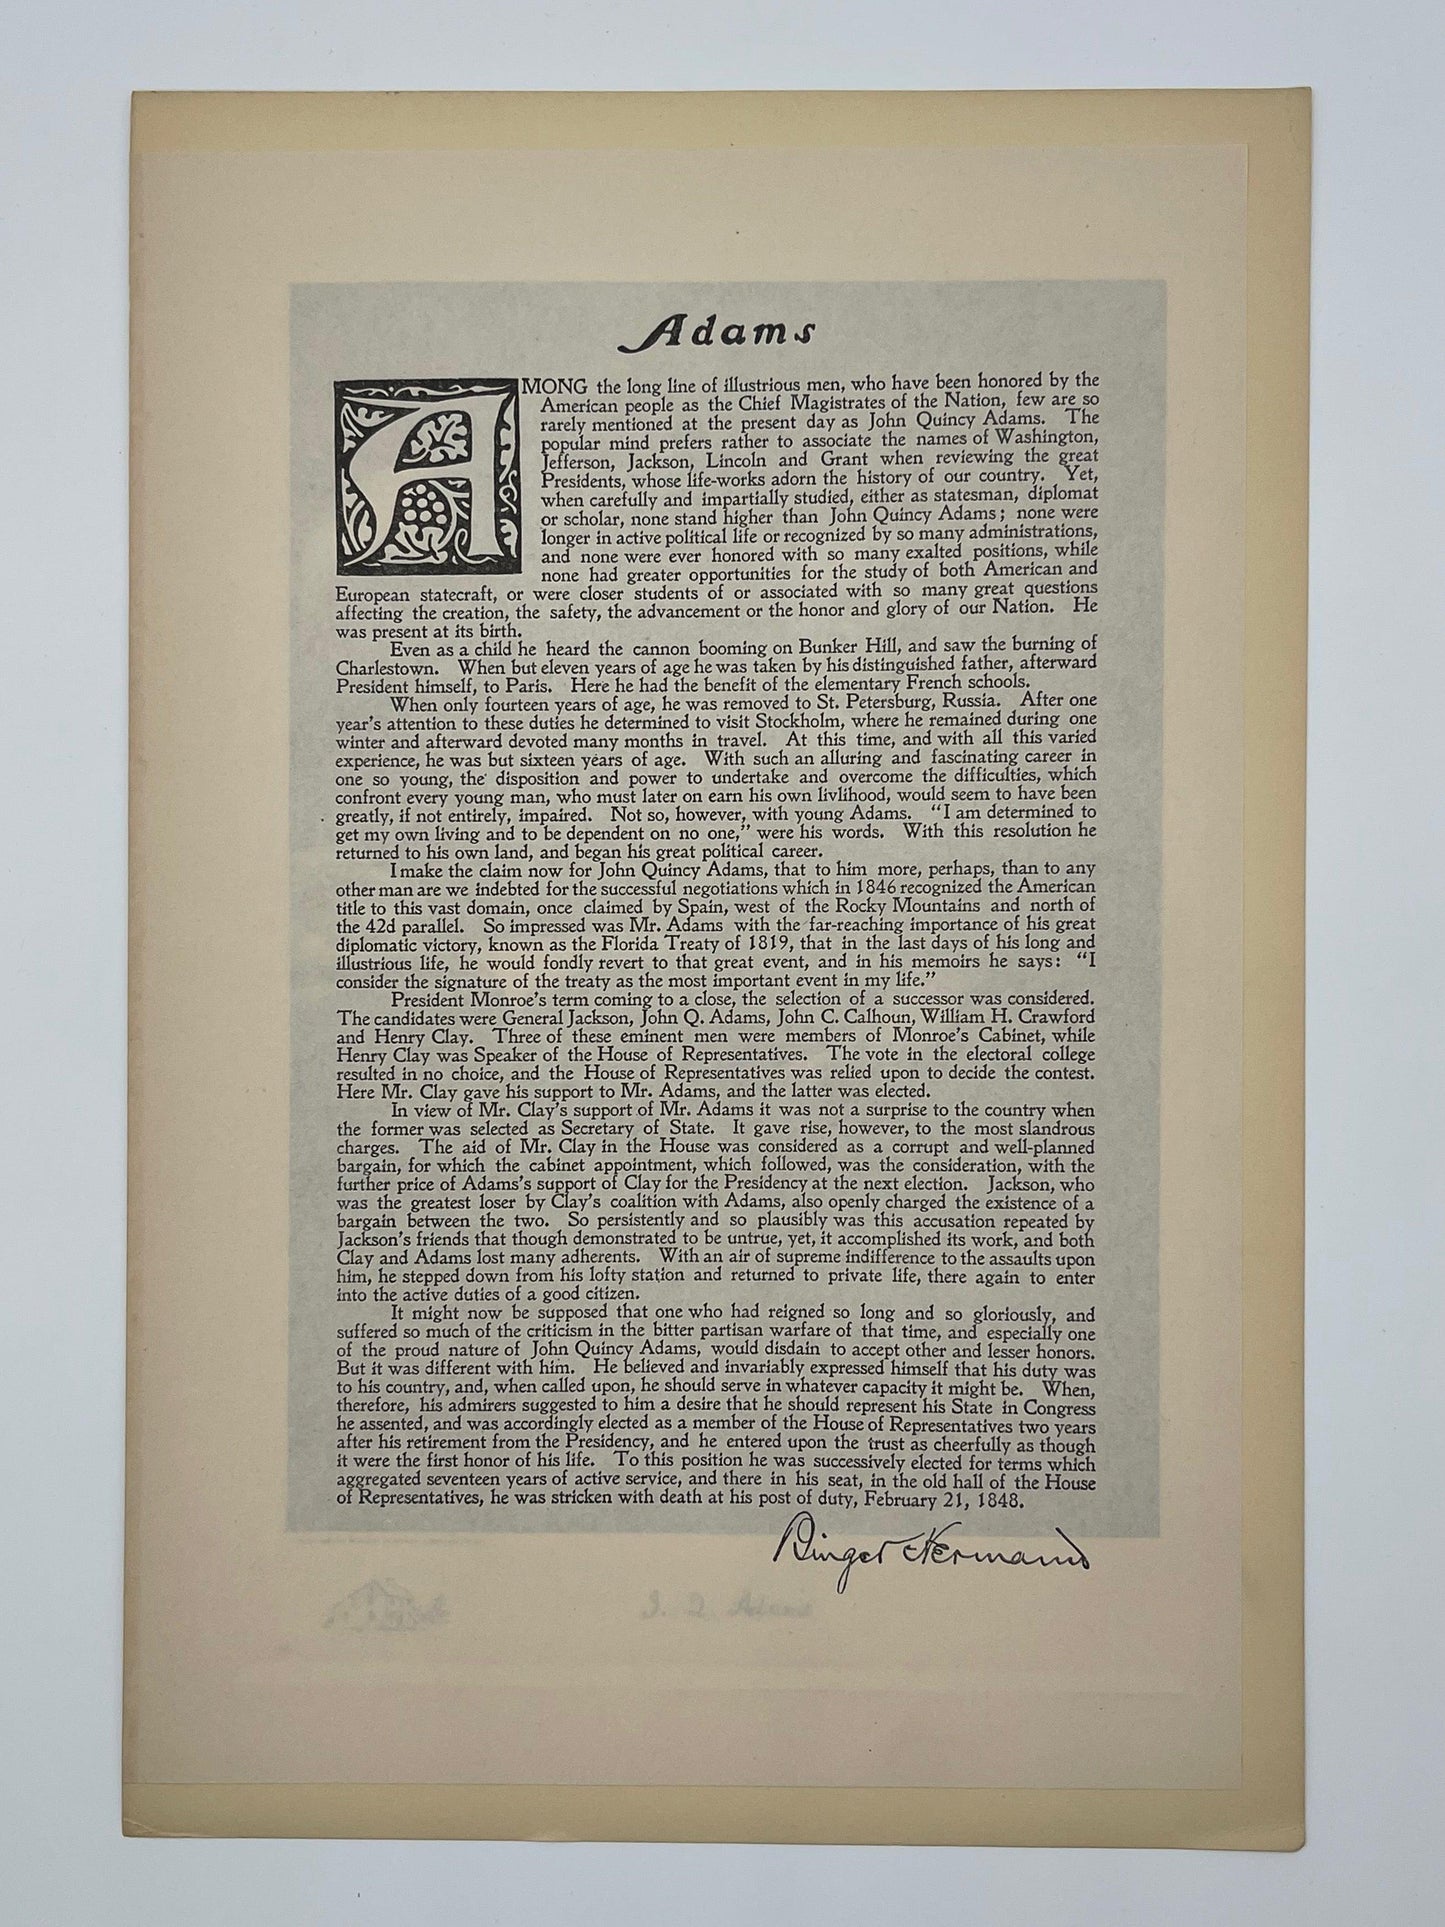 Adams
AMONG the long line of illustrious men, who have been honored by the
American people as the Chief Magistrates of the Nation, few are so
rarely mentioned at the present day as John Quincy Adams. The
popular mind prefers rather to associate the names of Washington,
Jefferson, Jackson, Lincoln and Grant when reviewing the great
Presidents, whose life-works adorn the history of our country. Yet,
when carefully and impartially studied, either as statesman, diplomat
or scholar, none stand higher than John Quincy Adams; none were
longer in active political life or recognized by so many administrations,
and none were ever honored with so many exalted positions, while
none had greater opportunities for the study of both American and
European statecraft, or were closer students of or associated with so many great questions
affecting the creation, the safety, the advancement or the honor and glory of our Nation. He
was present at its birth.
Even as a child he heard the cannon booming on Bunker Hill, and saw the burning of
Charlestown. When but eleven years of age he was taken by his distinguished father, afterward
President himself, to Paris. Here he had the benefit of the elementary French schools.
When only fourteen years of age, he was removed to St. Petersburg, Russia. After one
year's attention to these duties he determined to visit Stockholm, where he remained during one
winter and afterward devoted many months in travel. At this time, and with all this varied
experience, he was but sixteen years of age. With such an alluring and fascinating career in
one so young, the disposition and power to undertake and overcome the difficulties, which
confront every young man, who must later on earn his own livlihood, would seem to have been
greatly, if not entirely, impaired. Not so, however, with young Adams. "I am determined to
get my own living and to be dependent on no one," were his words. With this resolution he
returned to his own land, and began his great political career.
I make the claim now for John Quincy Adams, that to him more, perhaps, than to any
other man are we indebted for the successful negotiations which in 1846 recognized the American
title to this vast domain, once claimed by Spain, west of the Rocky Mountains and north of
the 42d parallel. So impressed was Mr. Adams with the far-reaching importance of his great
diplomatic victory, known as the Florida Treaty of 1819, that in the last days of his long and
illustrious life, he would fondly revert to that great event, and in his memoirs he says: "I
consider the signature of the treaty as the most important event in my life."
President Monroe's term coming to a close, the selection of a successor was considered.
The candidates were General Jackson, John Q. Adams, John C. Calhoun, William H. Crawford
and Henry Clay. Three of these eminent men were members of Monroe's Cabinet, while
Henry Clay was Speaker of the House of Representatives. The vote in the electoral college
resulted in no choice, and the House of Representatives was relied upon to decide the contest.
Here Mr. Clay gave his support to Mr. Adams, and the latter was elected.
In view of Mr. Clay's support of Mr. Adams it was not a surprise to the country when
the former was selected as Secretary of State. It gave rise, however, to the most slandrous
charges. The aid of Mr. Clay in the House was considered as a corrupt and well-planned
bargain, for which the cabinet appointment, which followed, was the consideration, with the
further price of Adams's support of Clay for the Presidency at the next election. Jackson, who
was the greatest loser by Clay's coalition with Adams, also openly charged the existence of a
bargain between the two. So persistently and so plausibly was this accusation repeated by
Jackson's friends that though demonstrated to be untrue, yet, it accomplished its work, and both
Clay and Adams lost many adherents. With an air of supreme indifference to the assaults upon
him, he stepped down from his lofty station and returned to private life, there again to enter
into the active duties of a good citizen.
It might now be supposed that one who had reigned so long and so gloriously, and
suffered so much of the criticism in the bitter partisan warfare of that time, and especially one
of the proud nature of John Quincy Adams, would disdain to accept other and lesser honors.
But it was different with him. He believed and invariably expressed himself that his duty was
to his country, and, when called upon, he should serve in whatever capacity it might be. When,
therefore, his admirers suggested to him a desire that he should represent his State in Congress
he assented, and was accordingly elected as a member of the House of Representatives two years
after his retirement from the Presidency, and he entered upon the trust as cheerfully as though
it were the first honor of his life. To this position he was successively elected for terms which
aggregated seventeen years of active service, and there in his seat, in the old hall of the House
of Representatives, he was stricken with death at his post of duty, February 21, 1848.
Binger Hermann
J. Q. Adams